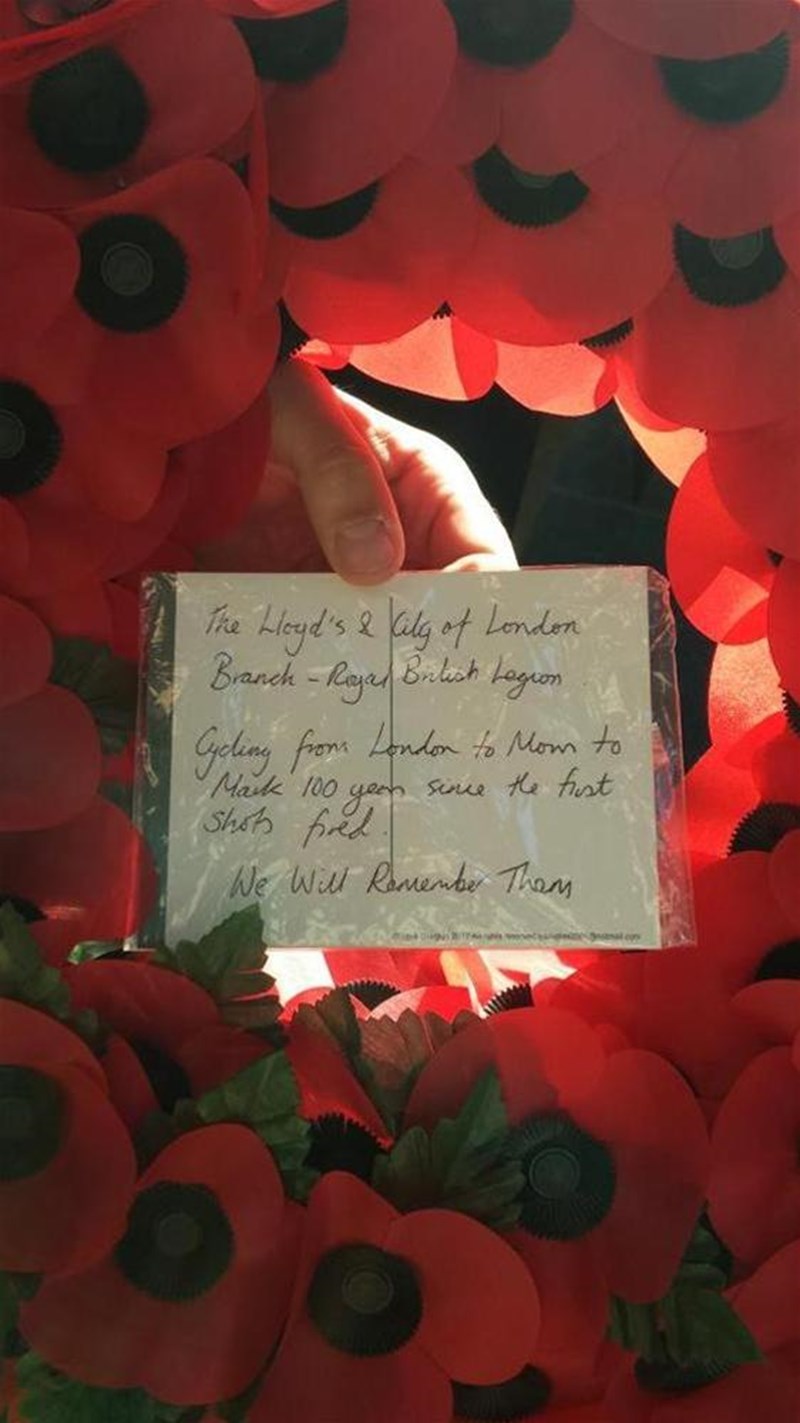 The Lloyd's & City of London
Branch - Royal British Legion
Cycling from London to Mons to
Mark 100 years since the first
shots fired.
We Will Remember Them